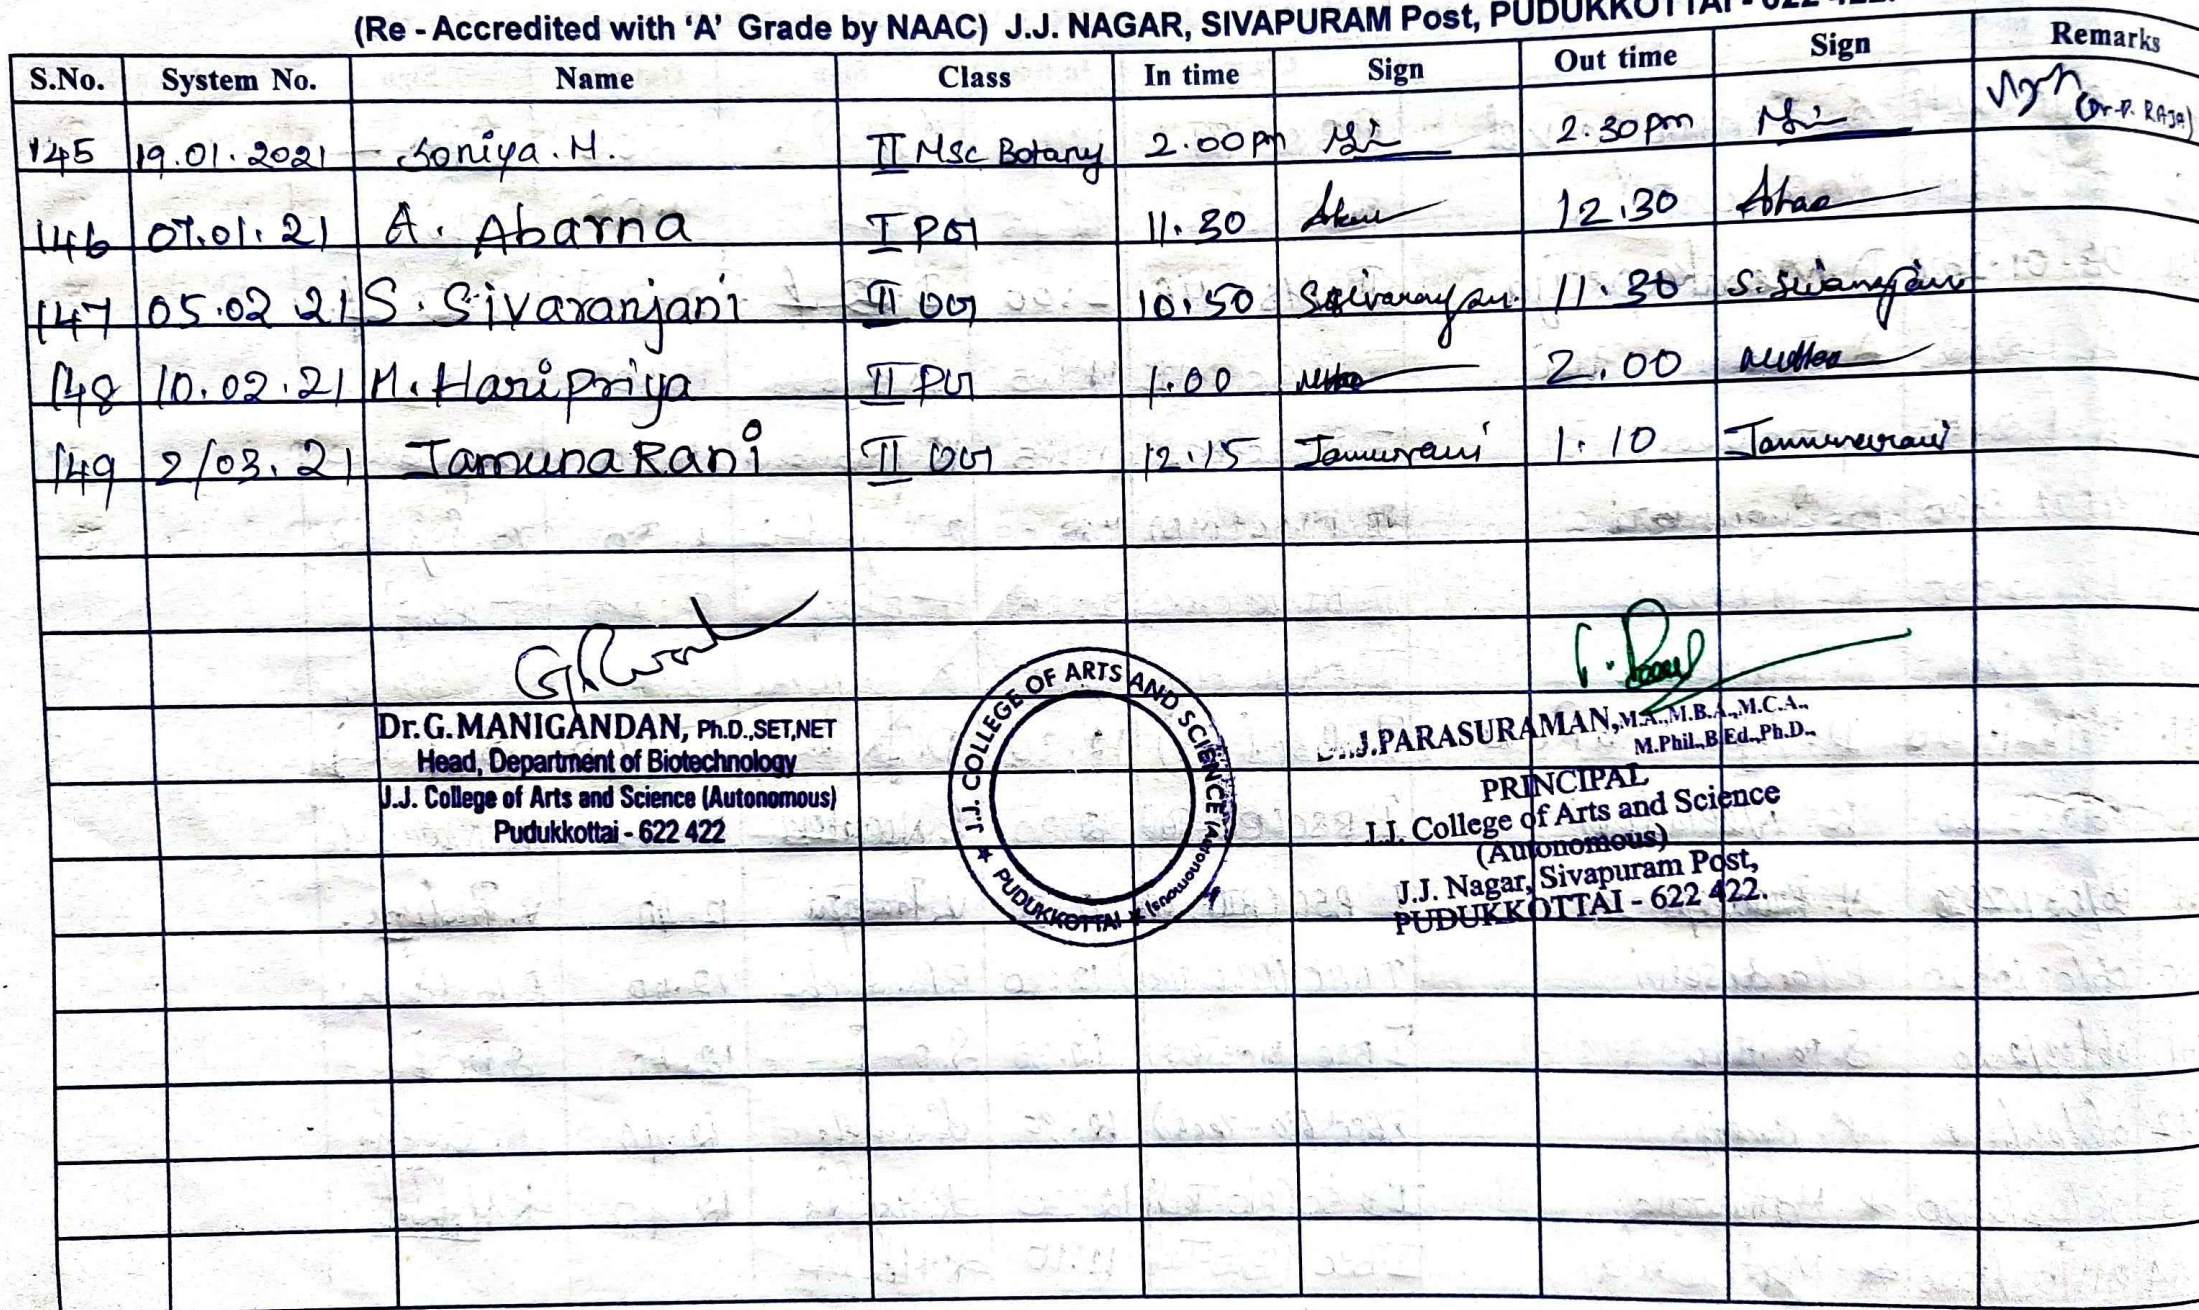 (Re - Accredited with ‘A’ Grade by NAAC) J.J. NAGAR, SIVAPURAM Post, PUDUKKOTTAI - 622 422.
S.No. System No. Name Class In time Sign Out time Sign Remarks
145 19.01.2021 Soniya. M. II Msc Botany 2.00 pm 2.30 pm (Dr. P. RAJA)
146 07.01.21 A. Abarna I PG 11.30 12.30
147 05.02 21 S. Sivaranjani II UG 10.50 11.30 S. Sivaranjani
148 10.02.21 M. Haripriya II PG 1.00 2.00
149 2/03.21 Jamuna Rani II UG 12.15 Jamunarani 1.10 Jamunarani
Dr.G.MANIGANDAN, Ph.D.,SET,NET
Head, Department of Biotechnology
J.J. College of Arts and Science (Autonomous)
Pudukkottai - 622 422
J.J. COLLEGE OF ARTS AND SCIENCE (Autonomous)
★ PUDUKKOTTAI ★
J.PARASURAMAN, M.A.,M.B.A.,M.C.A.,
M.Phil.,B.Ed.,Ph.D.,
PRINCIPAL
J.J. College of Arts and Science
(Autonomous)
J.J. Nagar, Sivapuram Post,
PUDUKKOTTAI - 622 422.